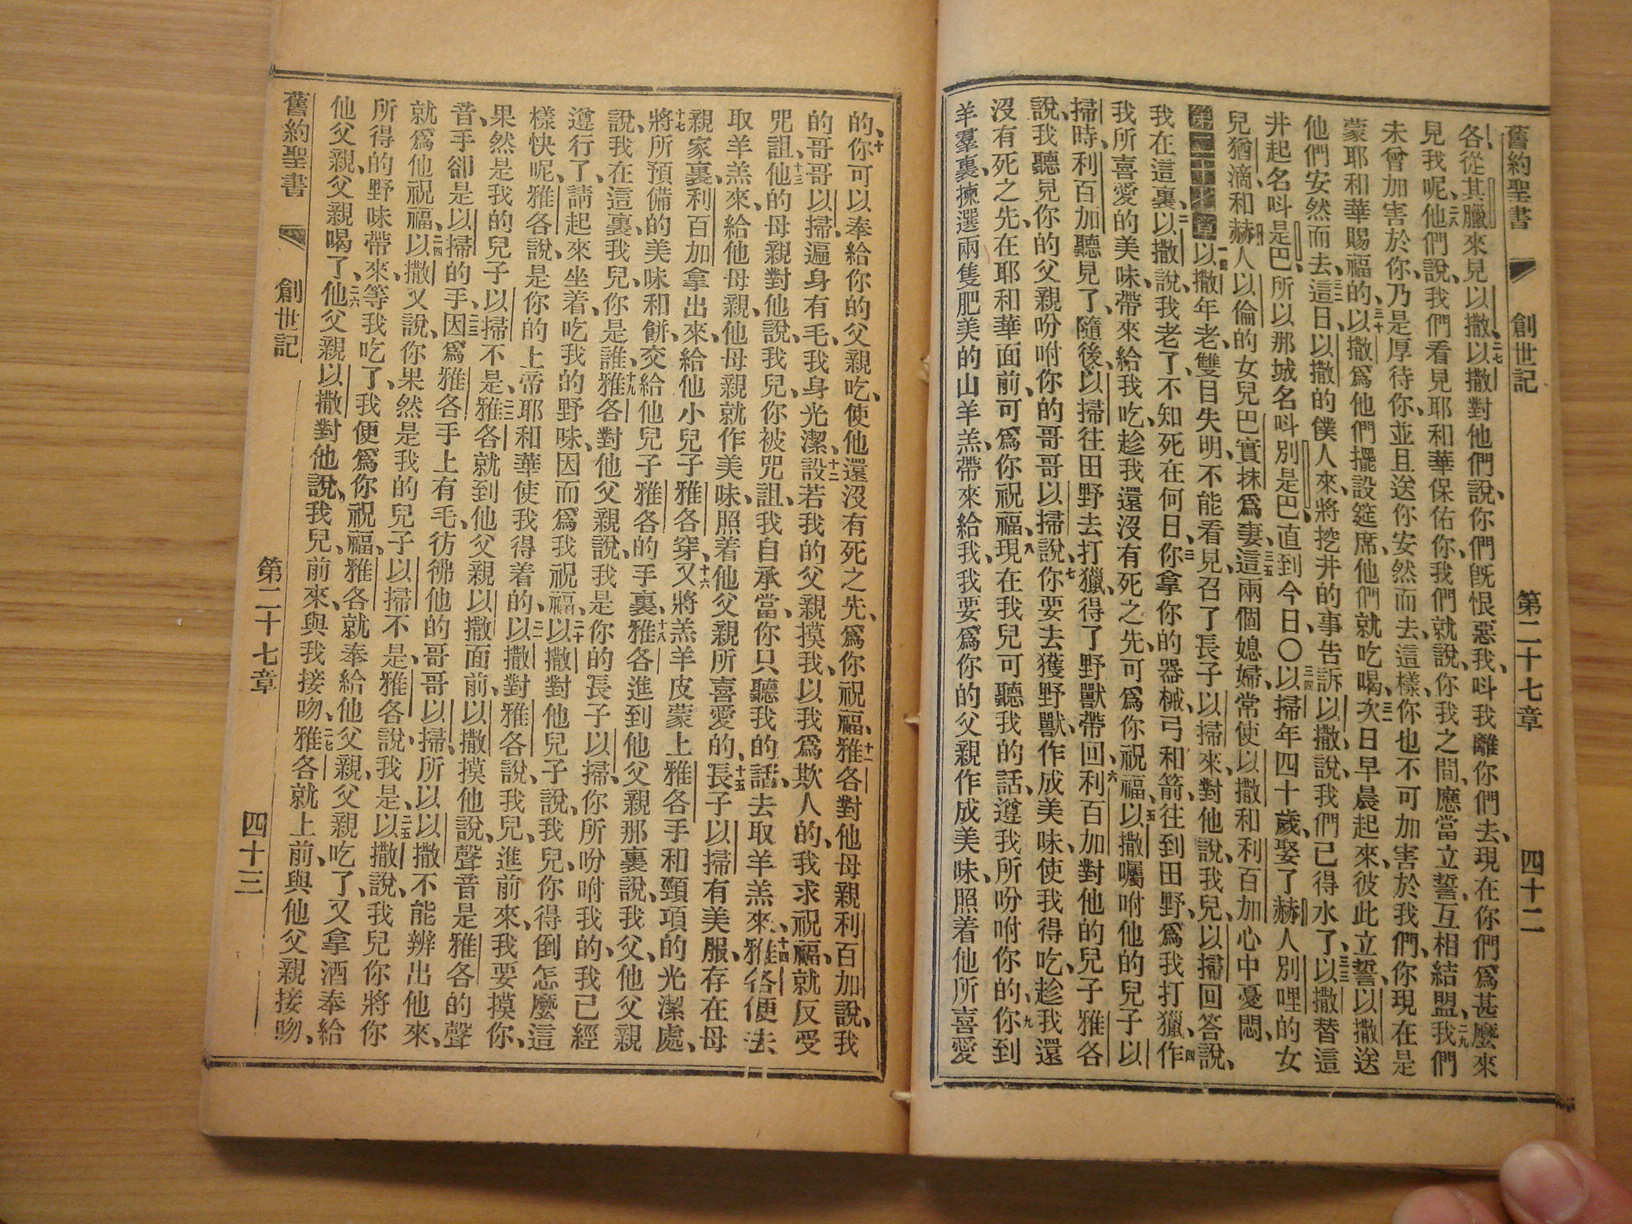 舊約聖書 創世記 第二十七章 四十二
各、從其臘來見以撒、二七以撒對他們說、你們旣恨惡我、呌我離你們去、現在你們爲甚麼來
見我呢、二八他們說、我們看見耶和華保佑你、我們就說、你我之間、應當立誓、互相結盟、二九我們
未曾加害於你、乃是厚待你、並且送你安然而去、這樣、你也不可加害於我們、你現在是
蒙耶和華賜福的、三十以撒爲他們擺設筵席、他們就吃喝、三一次日早晨起來、彼此立誓、以撒送
他們安然而去、三二這日、以撒的僕人來、將挖井的事告訴以撒、說、我們已得水了、三三以撒替這
井起名呌是巴、所以那城名呌別是巴、直到今日、〇三四以掃年四十歲、娶了赫人別哩的女
兒猶滴、和赫人以倫的女兒巴實抹爲妻、三五這兩個媳婦、常使以撒和利百加心中憂悶、
第二十七章一以撒年老、雙目失明、不能看見、召了長子以掃來、對他說、我兒、以掃回答說、
我在這裏、二以撒說、我老了、不知死在何日、三你拿你的器械、弓和箭、往到田野、爲我打獵、四作
我所喜愛的美味、帶來給我吃、趁我還沒有死之先、可爲你祝福、五以撒囑咐他的兒子以
掃時、利百加聽見了、隨後、以掃往田野去打獵、得了野獸帶回、六利百加對他的兒子雅各
說、我聽見你的父親吩咐你的哥哥以掃說、七你要去獲野獸、作成美味、使我得吃、趁我還
沒有死之先、在耶和華面前、可爲你祝福、八現在我兒可聽我的話、遵我所吩咐你的、九你到
羊羣裏、揀選兩隻肥美的山羊羔、帶來給我、我要爲你的父親作成美味、照着他所喜愛
的、十你可以奉給你的父親吃、使他還沒有死之先、爲你祝福、十一雅各對他母親利百加說、我
的哥哥以掃、遍身有毛、我身光潔、十二設若我的父親摸我、以我爲欺人的、我求祝福、就反受
咒詛、十三他的母親對他說、我兒、你被咒詛、我自承當、你只聽我的話、去取羊羔來、十四雅各便去
取羊羔來、給他母親、他母親就作美味、照着他父親所喜愛的、十五長子以掃有美服、存在母
親家裏、利百加拿出來、給他小兒子雅各穿、十六又將羔羊皮蒙上雅各手和頸項的光潔處、
十七將所預備的美味和餅、交給他兒子雅各的手裏、十八雅各進到他父親那裏、說、我父、他父親
說、我在這裏、我兒、你是誰、十九雅各對他父親說、我是你的長子以掃、你所吩咐我的、我已經
遵行了、請起來坐着、吃我的野味、因而爲我祝福、二十以撒對他兒子說、我兒、你得倒怎麼這
樣快呢、雅各說、是你的上帝耶和華使我得着的、二一以撒對雅各說、我兒、進前來、我要摸你、
果然是我的兒子以掃不是、二二雅各就到他父親以撒面前、以撒摸他說、聲音是雅各的聲
音、手卻是以掃的手、二三因爲雅各手上有毛、彷彿他的哥哥以掃、所以以撒不能辨出他來、
就爲他祝福、二四以撒又說、你果然是我的兒子以掃不是、雅各說、我是、二五以撒說、我兒你將你
所得的野味帶來、等我吃了、我便爲你祝福、雅各就奉給他父親、父親吃了、又拿酒奉給
他父親、父親喝了、二六他父親以撒對他說、我兒、前來、與我接吻、二七雅各就上前、與他父親接吻、
舊約聖書 創世記 第二十七章 四十三